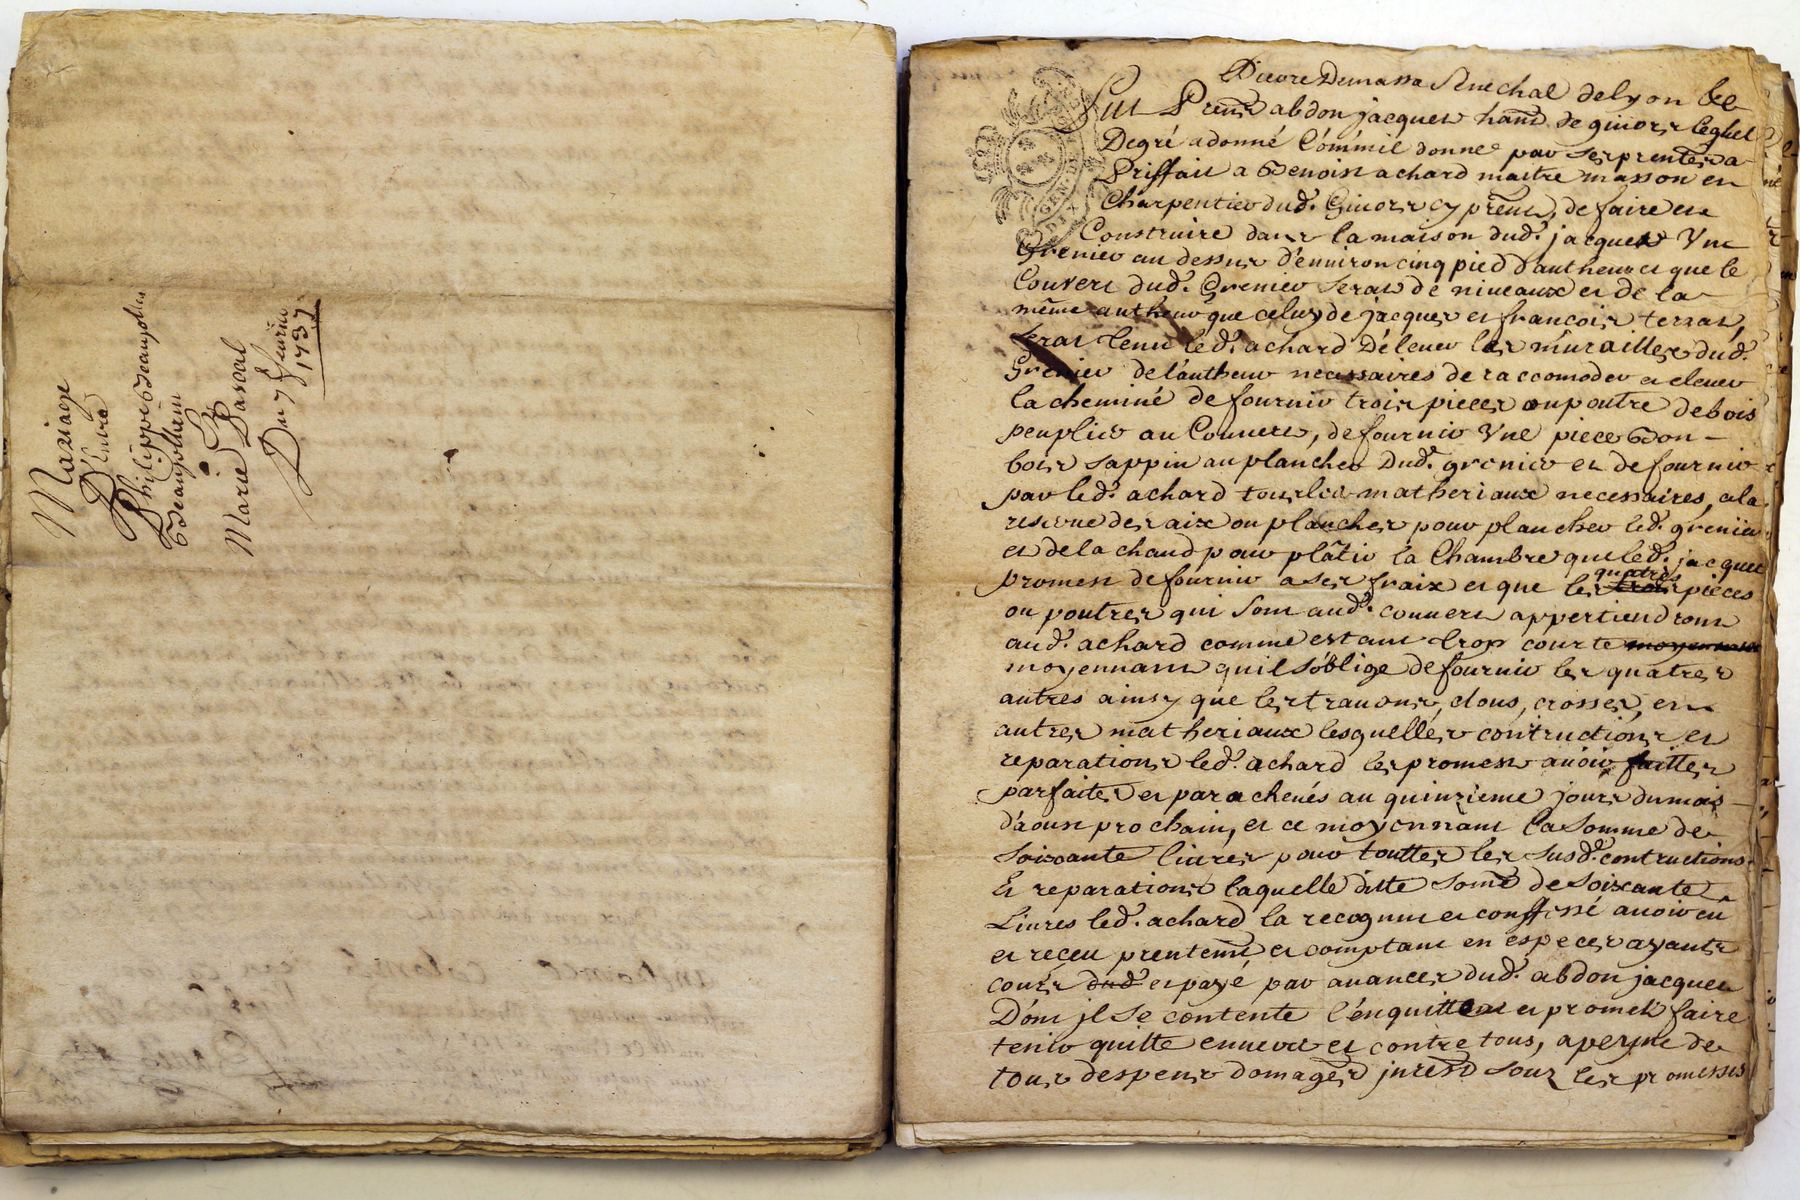 Mariage
D'entre
Philippe Beaujolin
Beaujolhin
Et
Marie Pascal
Du 7 feurier
1737
GEN. DE
DIX
Pierre Demassa Senechal de lyon
fut Present abdon jacques hant de giuors lequel
De gré a donné Commil donne par ses presentes a
Priffait a Benoist achard maitre masson et
Charpentier dud. Giuors cy present, de faire et
Construire dans la maison dud. jacques Vn
Grenier au dessus d'enuiron cinq pied d'autheur et que le
Couvert dud. Grenier serat de niueaux et de la
même autheur que celuy de jacques et françois terrat,
serat tenu led. achard D'éleuer les murailles dud.
Grenier de l'autheur necessaires de raccomoder et eleuer
la cheminé de fournir trois pieces ou poutre de bois
peuplier au Couuert, de fournir Vne piece Bon
bois sappin au plancher Dud. grenier et de fournir
par led. achard tous les matheriaux necessaires, a la
reserue des aix ou planches pour plancher led. grenier
et de la chaud pour plâtir la Chambre que led. jacques
promest de fournir a ses fraix et que les trois quatres pieces
ou poutres qui sont aud. couuert appertiendront
aud. achard comme estant trop courte moyennant
moyennant quil s'oblige de fournir les quatres
autres ainsy que les trauons, clous, crosses, et
autres matheriaux lesquelles contructions et
reparations led. achard les promest auoir faittes
parfaites et paracheués au quinzieme jours du mois
d'aoust prochain, et ce moyennant la somme de
soixante liures pour touttes les susd. contructions
Et reparations laquelle ditte some de soixante
Liures led. achard la recognut et conffessé auoir eû
et receu presentemt et comptant en especes ayants
cours dud. et payé par auances dud. abdon jacques
Dont jl se contente l'en quitte et promet faire
tenir quitte enuers et contre tous, a peyne de
tous despens domages jnterest sous les promesses